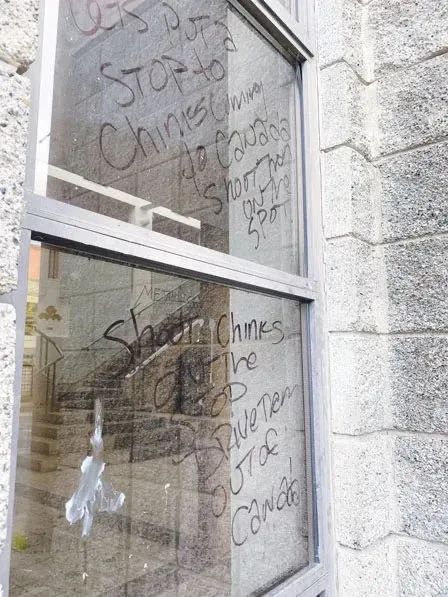 LETS PUT a
STOP to
Chinks Coming
to Canada
Shoot them
ON The
SPOT
Shoot Chinks
The
DRIVE Them
OUT OF
Canada